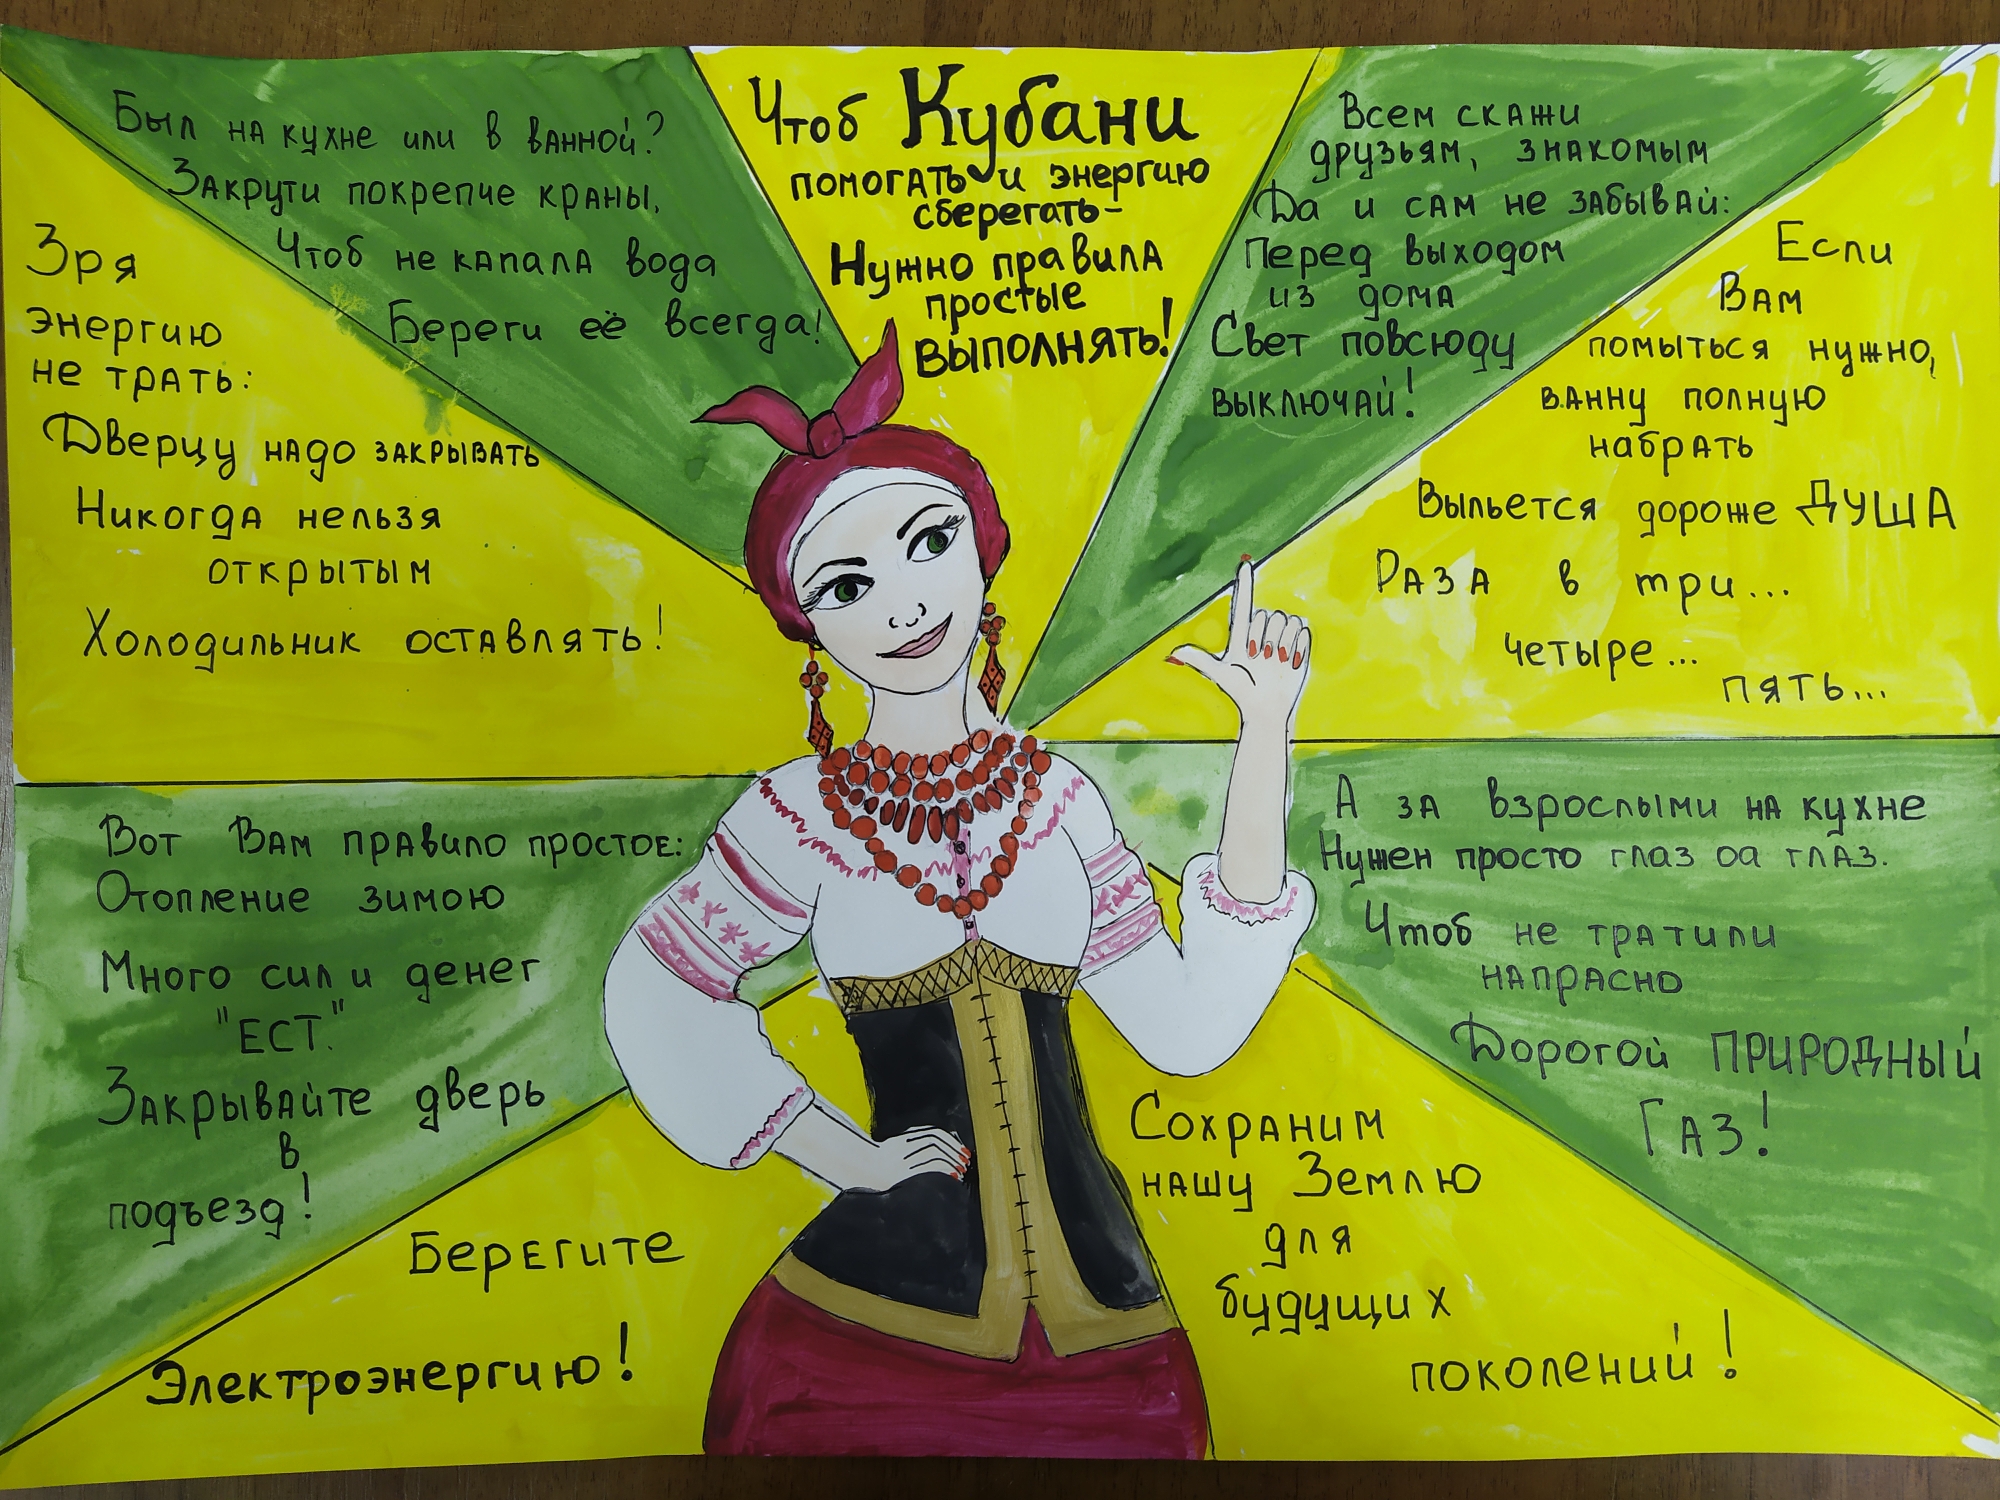 Чтоб Кубани
помогать и энергию
сберегать-
Нужно правила
простые
выполнять!
Был на кухне или в ванной?
Закрути покрепче краны,
Чтоб не капала вода
Береги её всегда!
Зря
энергию
не трать:
Дверцу надо закрывать
Никогда нельзя
открытым
Холодильник оставлять!
Вот Вам правило простое:
Отопление зимою
Много сил и денег
"ЕСТ."
Закрывайте дверь
в
подъезд!
Берегите
Электроэнергию!
Всем скажи
друзьям, знакомым
Да и сам не забывай:
Перед выходом
из дома
Свет повсюду
выключай!
Если
Вам
помыться нужно,
ванну полную
набрать
Выльется дороже ДУША
Раза в три...
четыре...
пять...
А за взрослыми на кухне
Нужен просто глаз оа глаз.
Чтоб не тратили
напрасно
Дорогой ПРИРОДНЫЙ
ГАЗ!
Сохраним
нашу Землю
для
будущих
поколений!